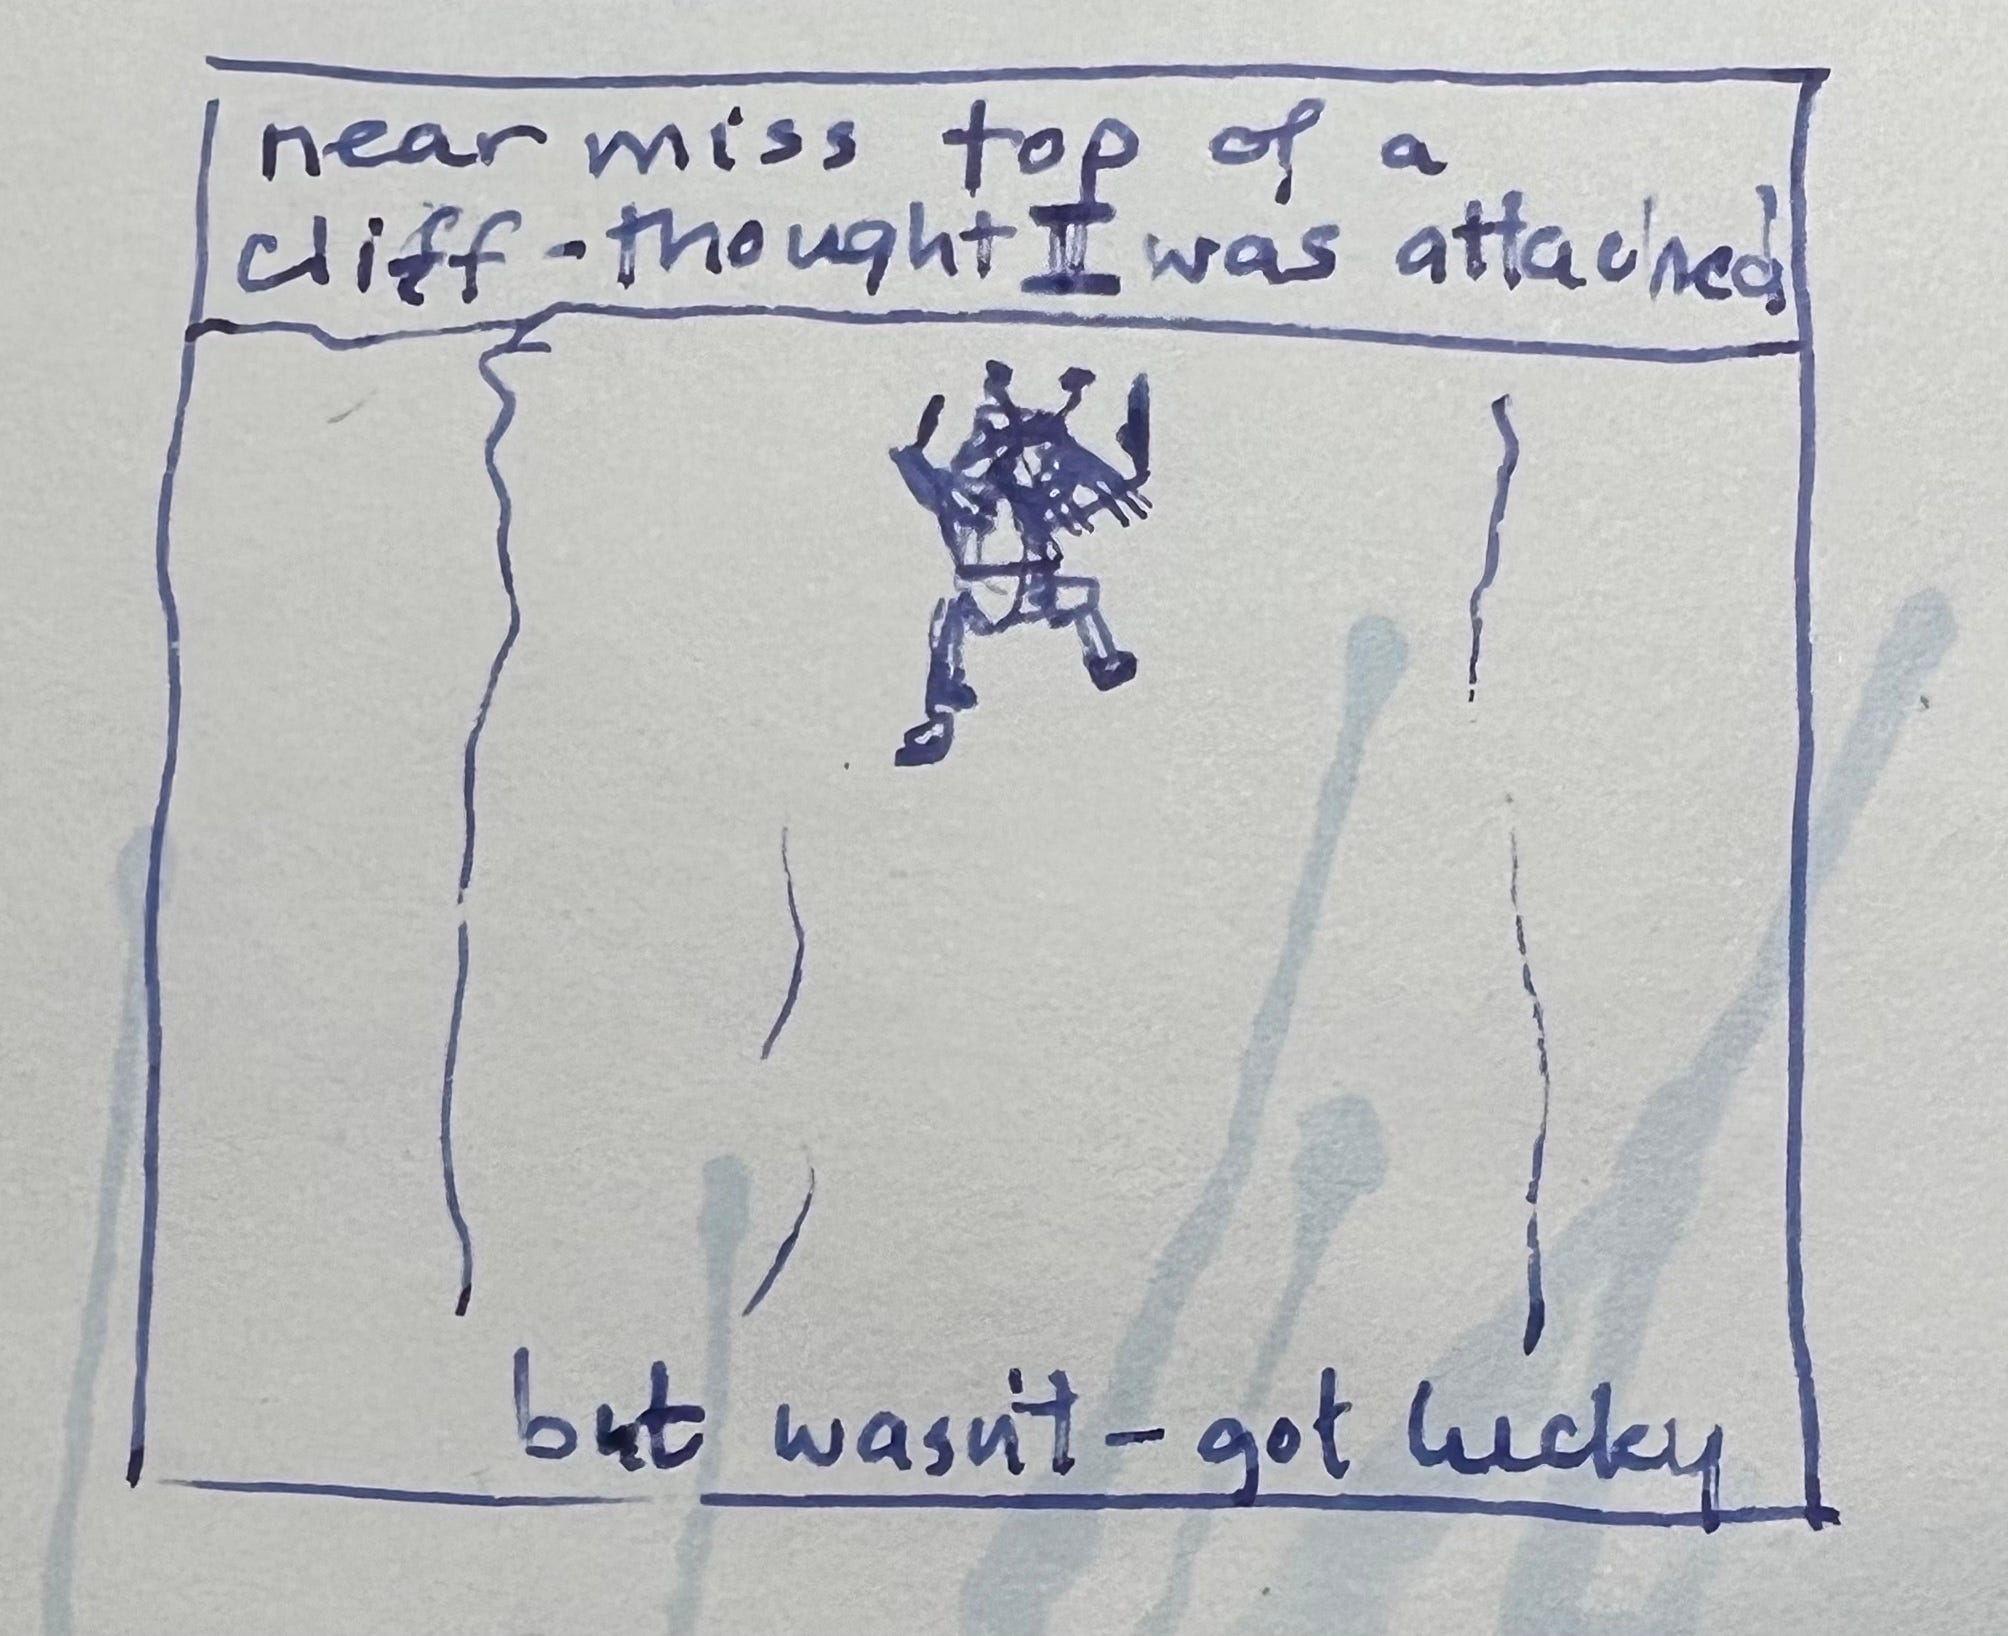 near miss top of a
cliff - thought I was attached
but wasn't - got lucky